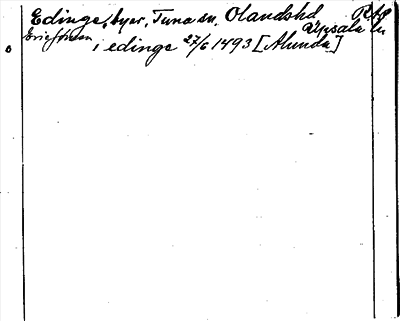 Edinge, byar, Tuna sn. Olandshd RAp
Uppsala län
i edinge 27/6 1493 [Alunda]